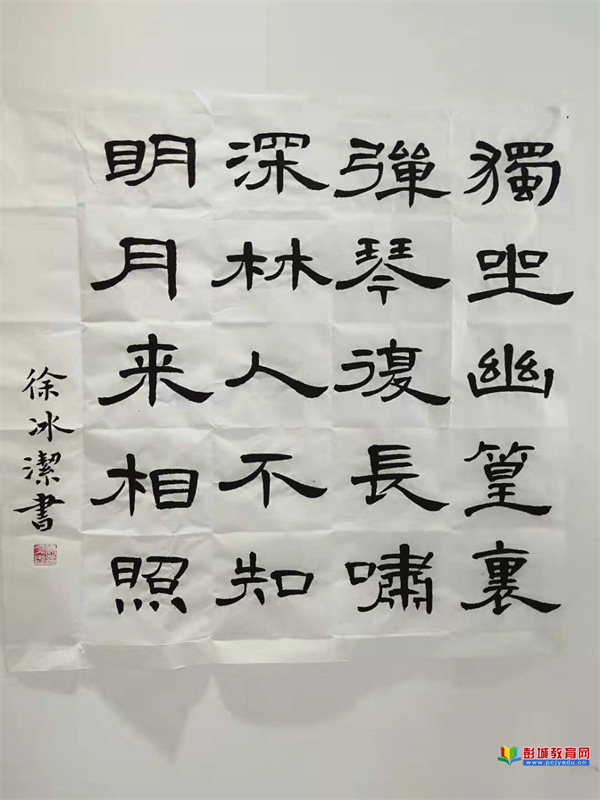 獨坐幽篁裏
彈琴復長嘯
深林人不知
明月来相照
徐冰潔書
彭城教育网
www.pcjyedu.cn